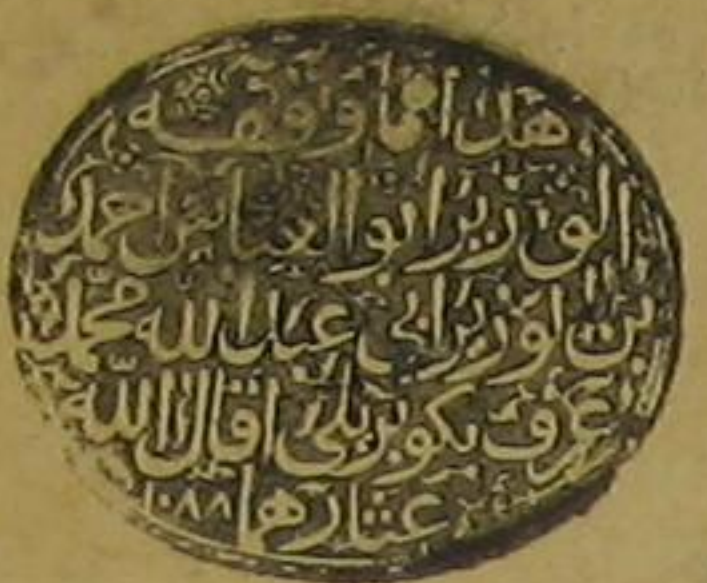 هذا مما وقفه
الوزير ابو العباس احمد
بن الوزير ابي عبد الله محمد
عرف بكوبريلي اقال الله
عثارهما ١٠٨٨